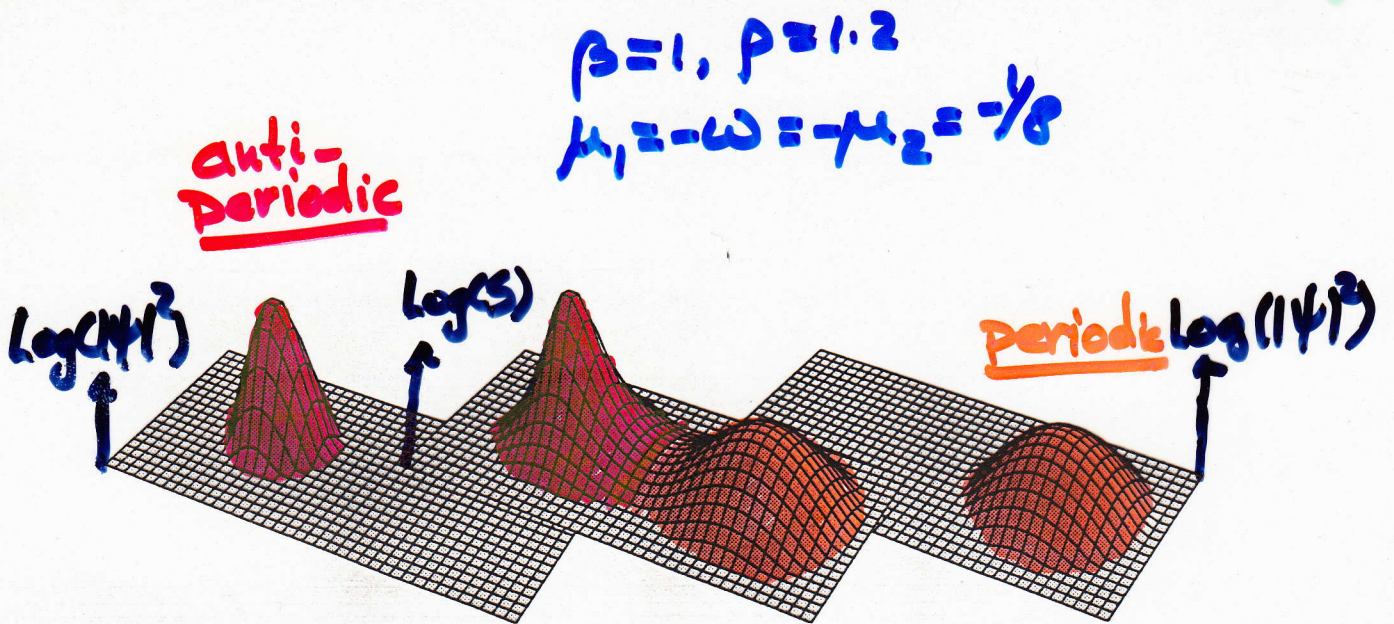 β=1, ρ=1.2
μ₁=-ω=-μ₂=-1/8
anti-
periodic
Log(|ψ|²)
Log(S)
periodic Log(|ψ|²)